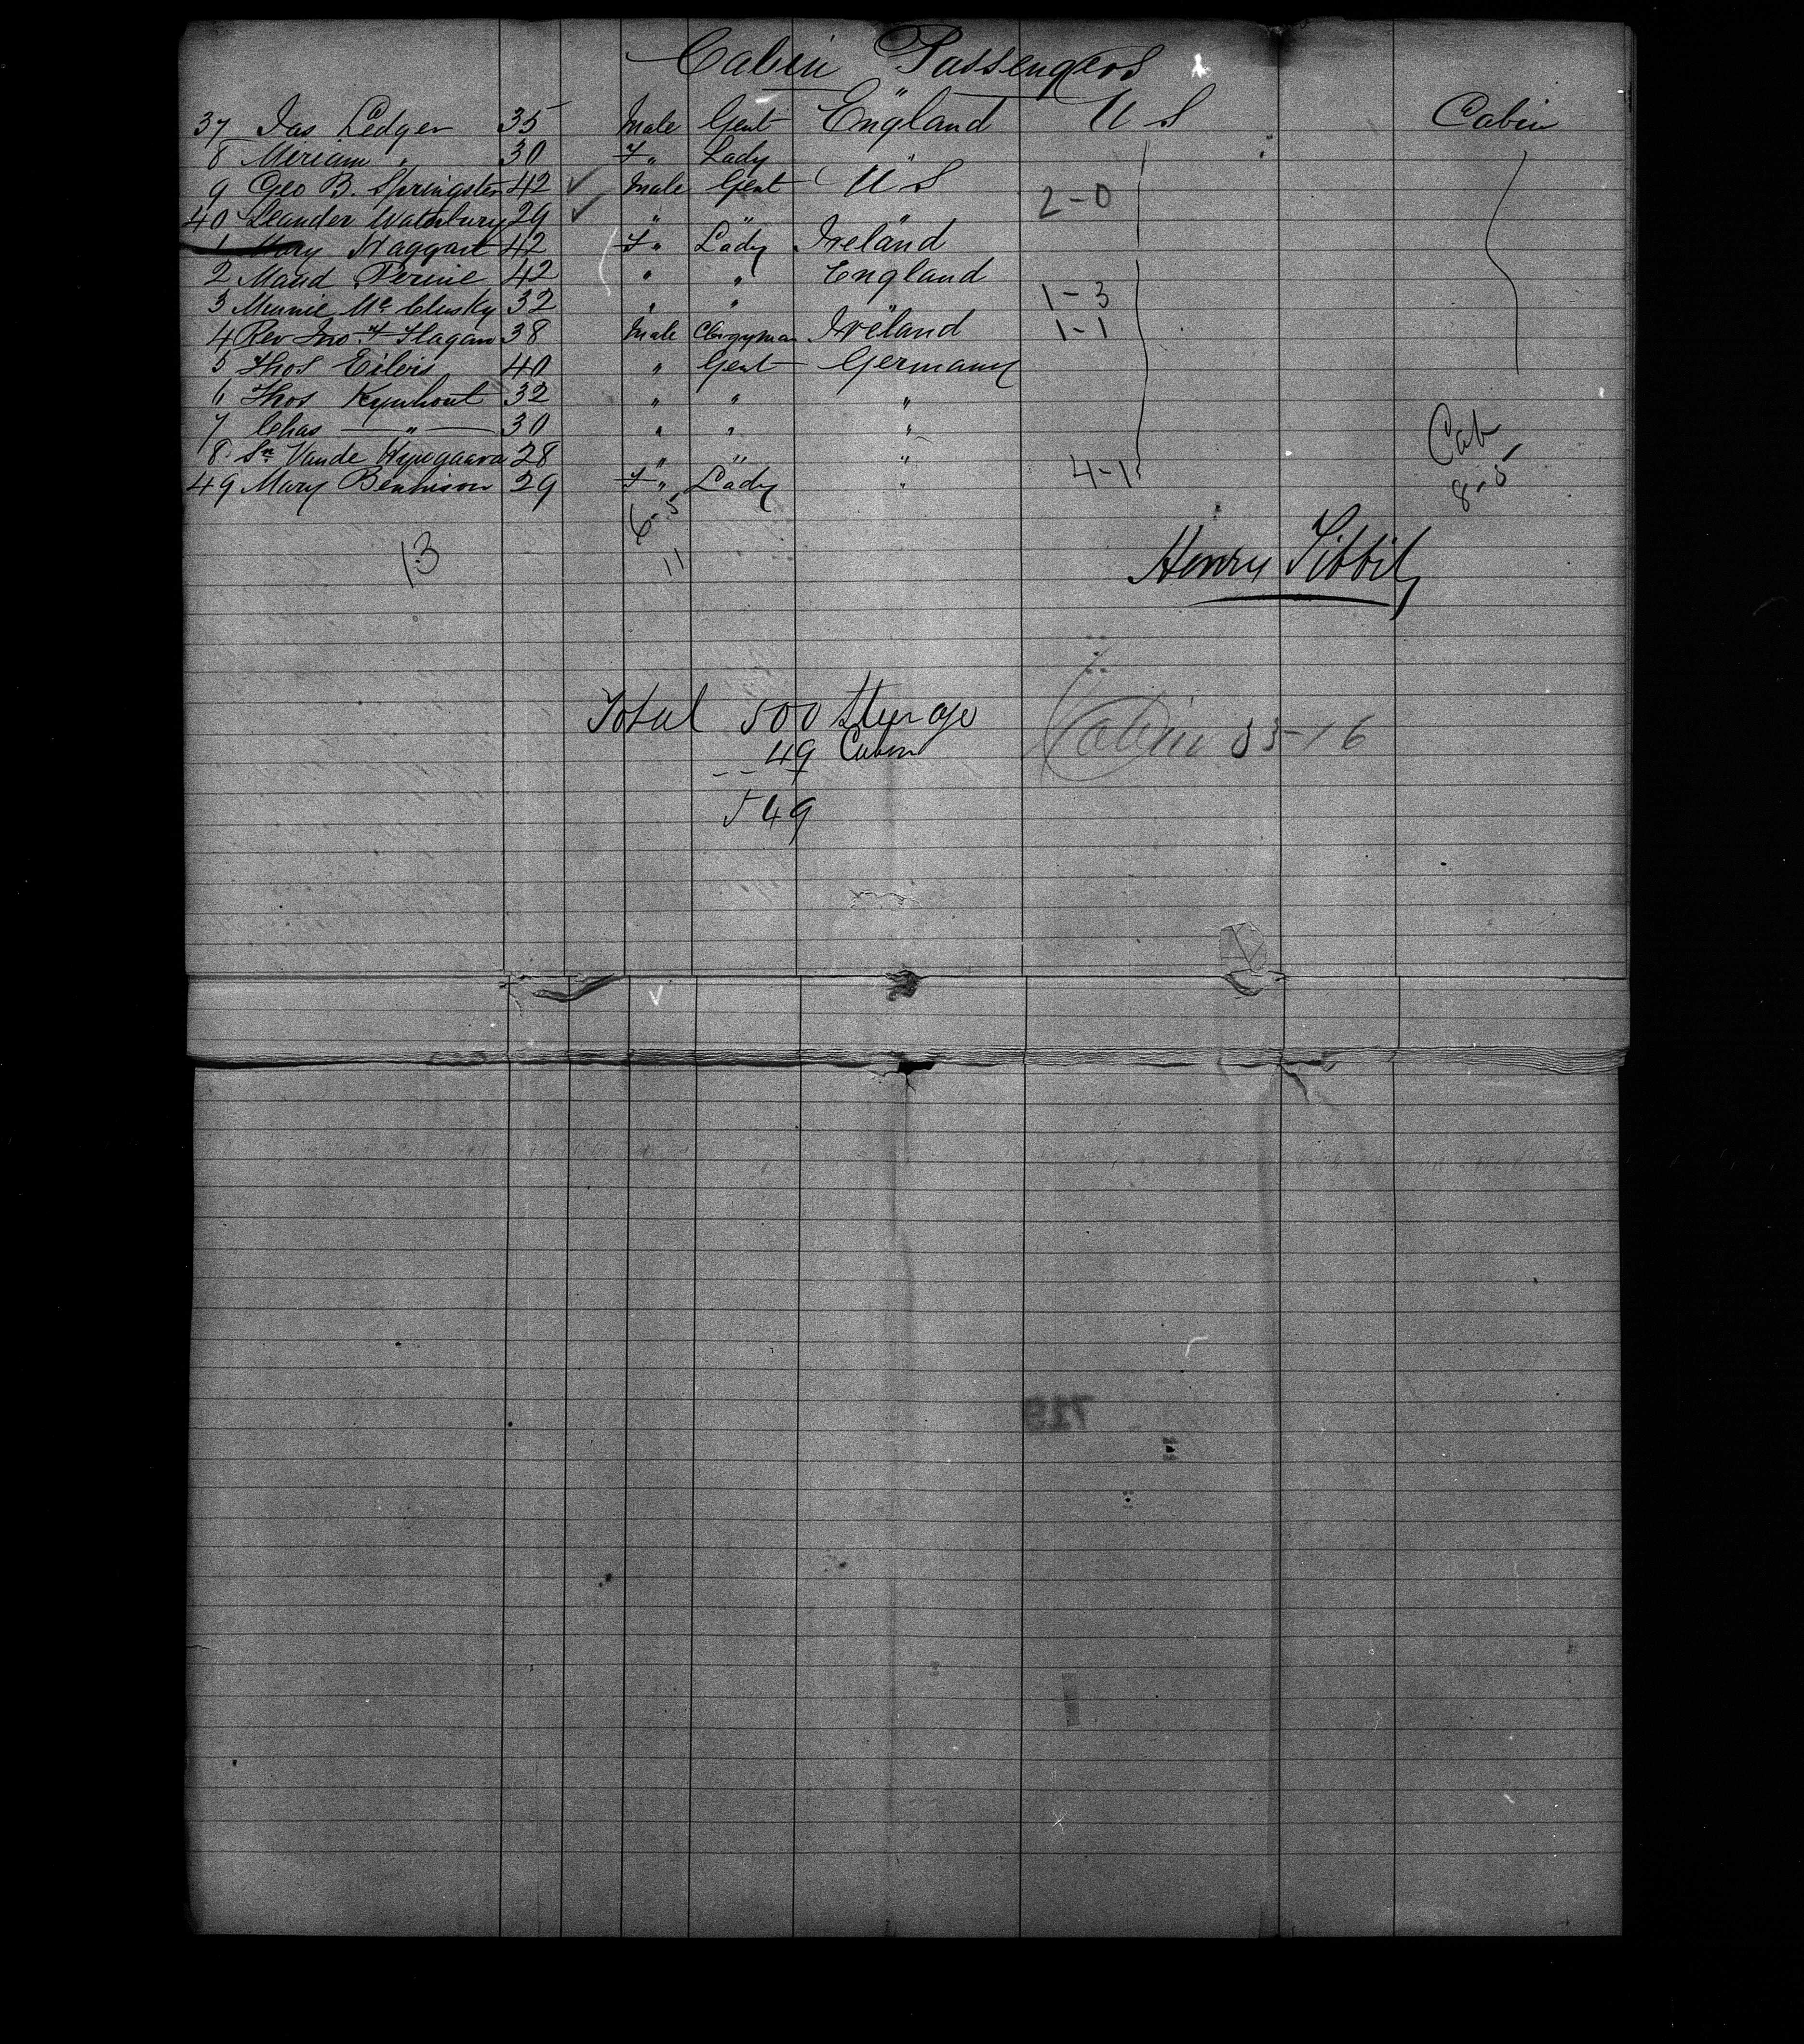 Cabin Passengers
37 Jas Ledger 35 Male Gent England U S Cabin
8 Miriam " 30 F " Lady "
9 Geo B. Springsten 42 ✓ Male Gent U S
2-0
40 Leander Waterbury 29 ✓ " " "
1 Mary Haggart 42 F " Lady Ireland
2 Maud Perine 42 " " England
3 Minnie Mc Clusky 32 " " " 1-3
4 Rev Jno F Hagan 38 Male Clergyman Ireland 1-1
5 Thos Eilers 40 " Gent Germany
6 Thos Kynhout 32 " " "
7 Chas — " — 30 " " "
8 Sn Vande 28 " " " 4-1
49 Mary Bennison 29 F " Lady "
Cab
8-5
6-5
13 11
Henry Tibbits
Total 500 Steerage
49 Cabin
549
Cabin 33-16
719